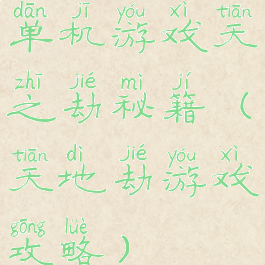 dān jī yóu xì tiān
单机游戏天
zhī jié mì jí
之劫秘籍（
tiān dì jié yóu xì
天地劫游戏
gōng lüè
攻略）